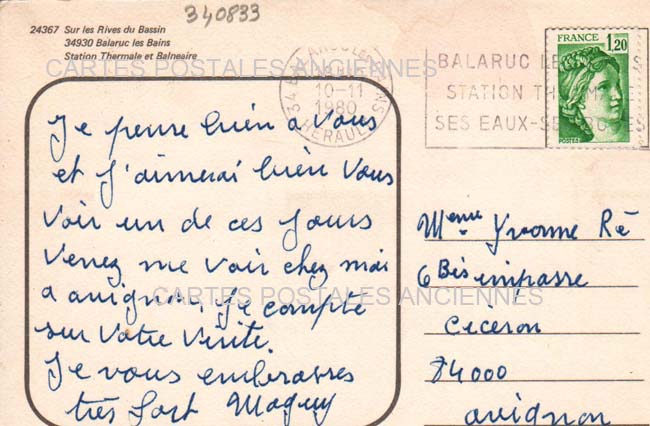 340833
24367 Sur les Rives du Bassin
34930 Balaruc les Bains
Station Thermale et Balneaire
CARTES POSTALES ANCIENNES
10-11
1980
HERAULT
BALARUC LE
STATION TH
SES EAUX-SE
FRANCE
1,20
POSTES
Je pense bien a Vous
et J'aimerai bien Vous
Voir un de ces Jours
Venez me voir chez moi
a avignon. Je compte
sur Votre Visite.
Je vous embrasses
très fort Maguy
CARTES POSTALES ANCIENNES
Meme Yvonne Ré
6 Bis impasse
Ciceron
84000
avignon